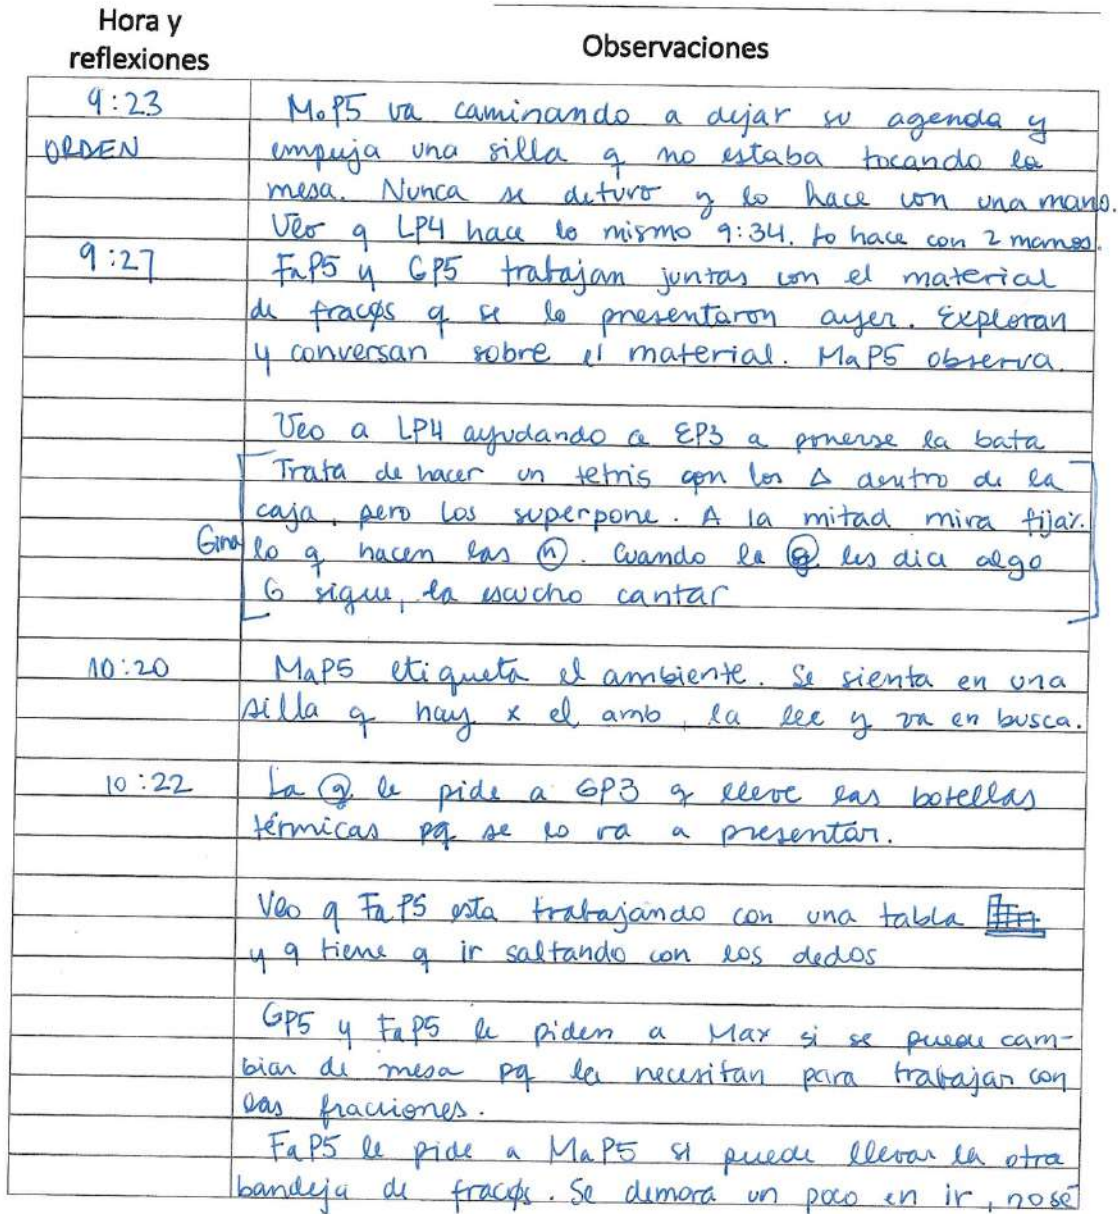 Hora y
reflexiones
Observaciones
9:23 MoP5 va caminando a dejar su agenda y
ORDEN empuja una silla q no estaba tocando la
mesa. Nunca se detuvo y lo hace con una mano.
Veo q LP4 hace lo mismo 9:34. Lo hace con 2 manos.
9:27 FaP5 y GP5 trabajan juntas con el material
de fracøs q se lo presentaron ayer. Exploran
y conversan sobre el material. MaP5 observa.
Veo a LP4 ayudando a EP3 a ponerse la bata
Trata de hacer un tetris con los Δ dentro de la
caja, pero los superpone. A la mitad mira fijax.
Gina lo q hacen las ⓝ. Cuando la ⓖ les dice algo
G sigue, la escucho cantar
10:20 MaP5 etiqueta el ambiente. Se sienta en una
silla q hay x el amb, la lee y va en busca.
10:22 La ⓖ le pide a GP3 q lleve las botellas
térmicas pq se lo va a presentar.
Veo q FaP5 esta trabajando con una tabla
y q tiene q ir saltando con los dedos
GP5 y FaP5 le piden a Max si se puede cam-
biar de mesa pq la necesitan para trabajar con
las fracciones.
FaP5 le pide a MaP5 si puede llevar la otra
bandeja de fracøs. Se demora un poco en ir, no sé